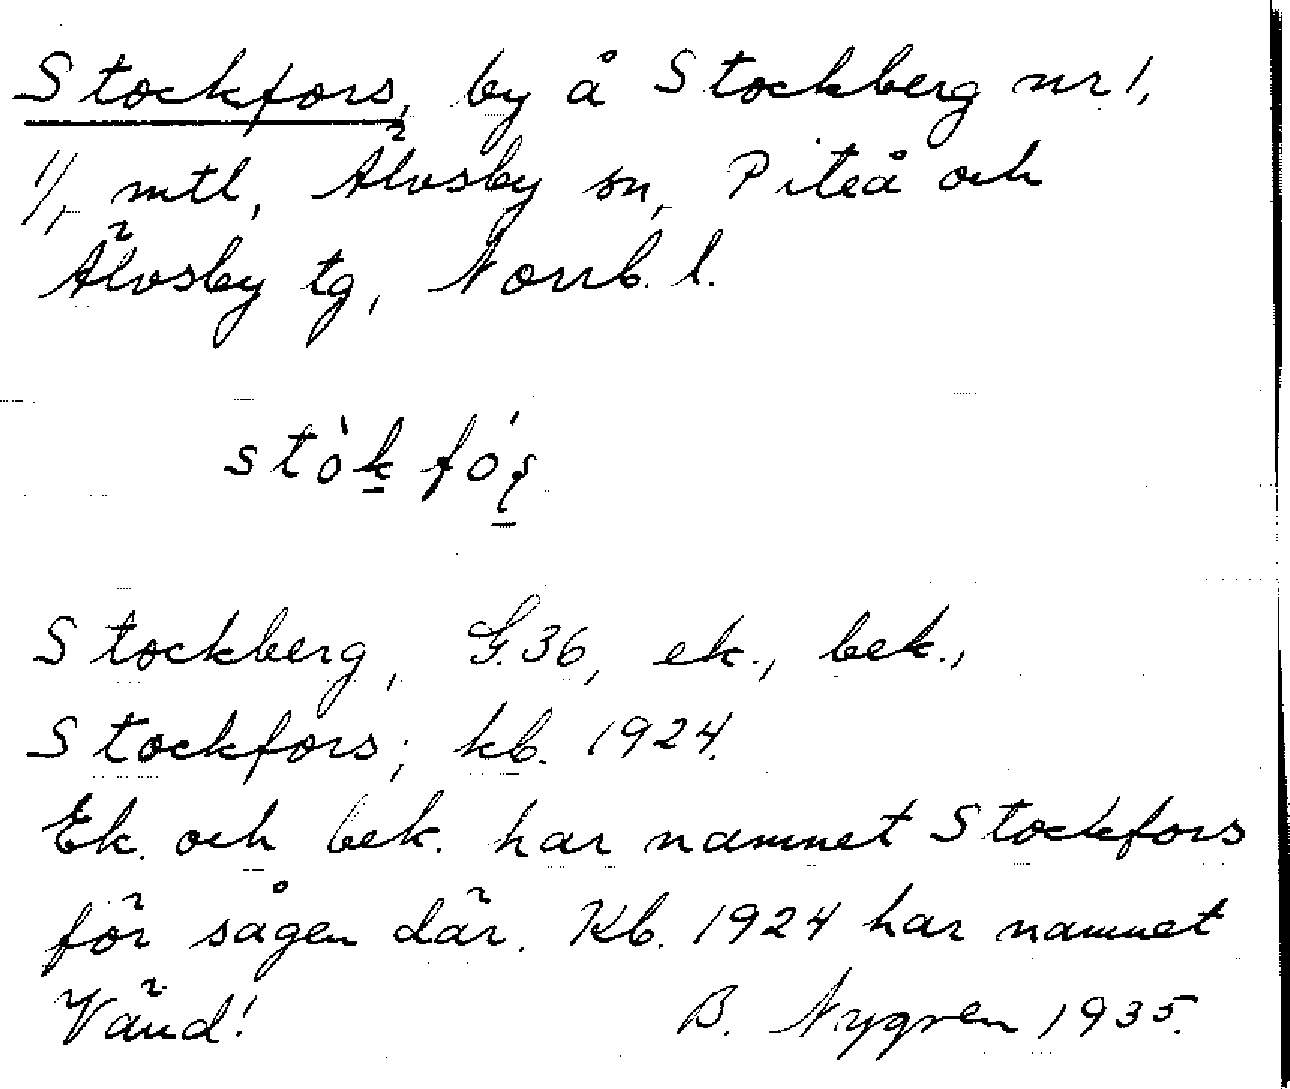 Stockfors, by å Stockberg nr 1,
1/1 mtl, Älvsby sn, Piteå och
Älvsby tg, Norrb. l.
stòk fóṣ
Stockberg, G.36, ek., bek.,
Stockfors; kb. 1924.
Ek. och bek. har namnet Stockfors
för sågen där. Kb. 1924 har namnet
Vänd! B. Nygren 1935.